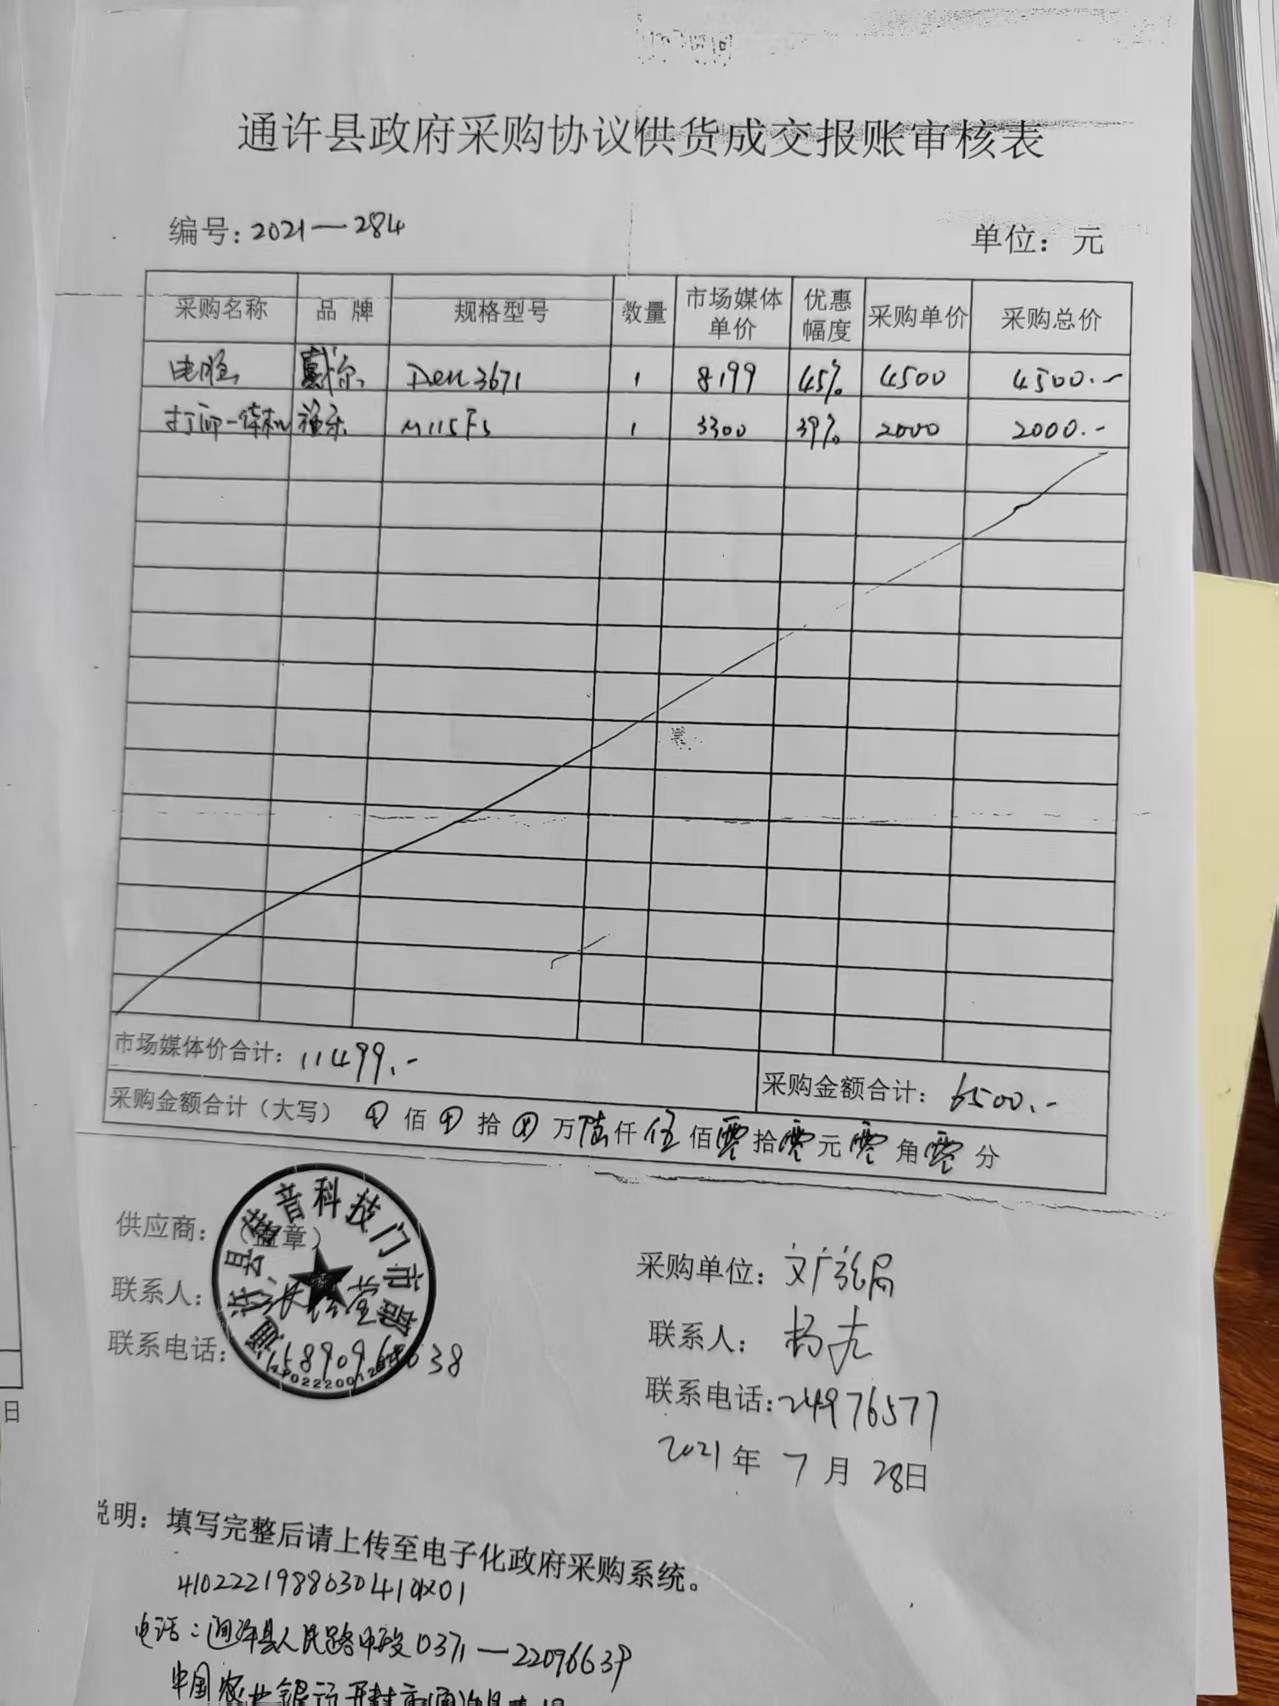 通许县政府采购协议供货成交报账审核表
编号：2021—284
单位：元
采购名称 品牌 规格型号 数量 市场媒体单价 优惠幅度 采购单价 采购总价
电脑 戴尔 Dell 3671 1 8199 45% 4500 4500.-
打印一体机 M115FS 1 3300 39% 2000 2000.-
市场媒体价合计：11499.-
采购金额合计：6500.-
采购金额合计（大写） 佰 拾 万陆仟伍佰零拾零元零角零分
供应商：（盖章）
音科技门市部
联系人：
联系电话：
采购单位：文广旅局
联系人：
联系电话：24976577
2021年7月28日
说明：填写完整后请上传至电子化政府采购系统。
电话：通许县人民路中段0371—22096639
中国农业银行开封市通许县
日